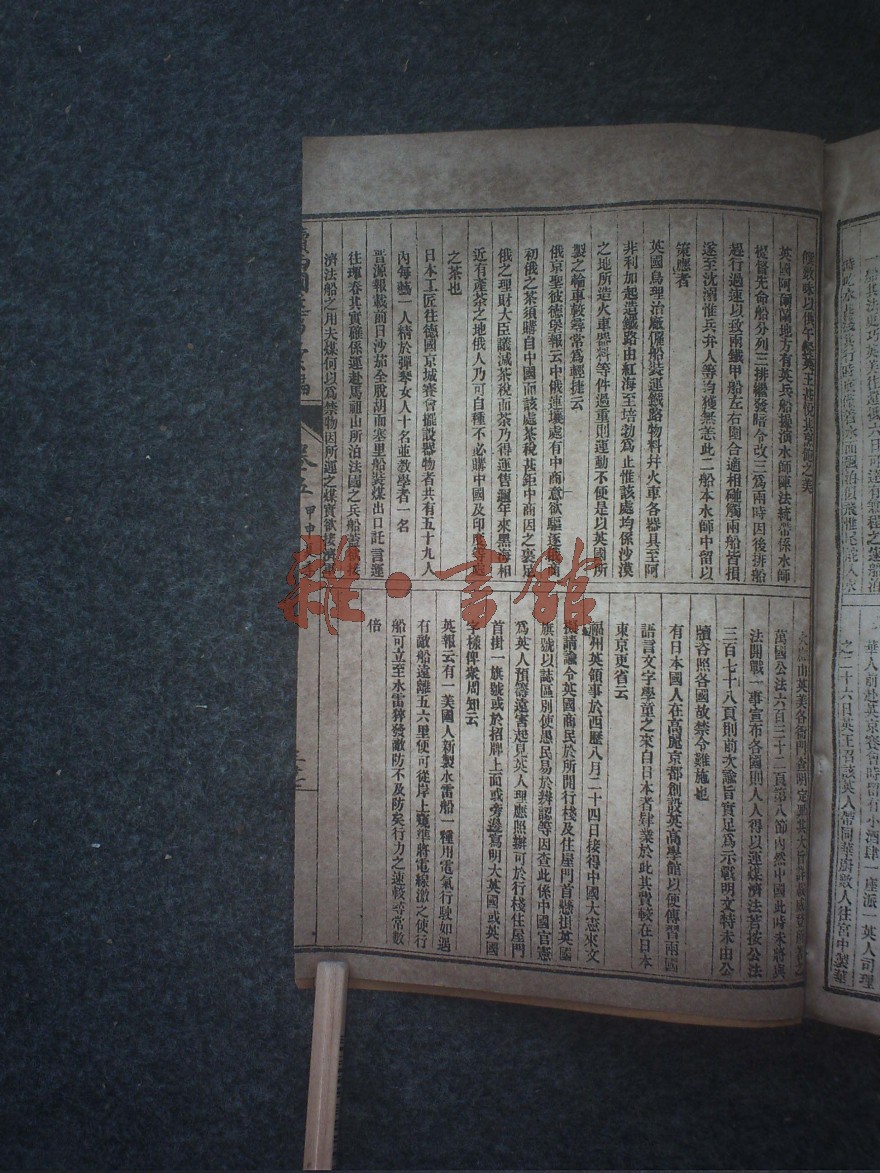 之二十六日英王召該英人帶同華廚數人往宮中製華
英國阿爾蘭地方有英兵船操演水師陣法統帶係水師
提督先命船分列三排繼發暗令改三為兩時因後排船
趕行過速以致兩鐵甲船左右圍合適相碰觸兩船皆損
遂至沈溺惟兵弁人等均獲無恙此二船本水師中留以
策應者
英國烏理治廠僱船裝運鐵路物料幷火車各器具至阿
非利加起造鐵路由紅海至培勃為止惟該處均係沙漠
之地所造火車器料等件過重則運動不便是以英國所
製之輪車較尋常為輕捷云
俄京聖彼德堡報云中俄連壤處有中商意欲驅逐俄商
初俄之茶須購自中國而該處茶稅甚鉅中商因之裹足
俄之理財大臣議減茶稅而茶乃得運售邇年來黑海相
近有產茶之地俄人乃可自種不必購中國及印度等處
之茶也
日本工匠往德國京城賽會擺設器物者共有五十九人
內每藝一人精於彈琴女人十名並教學者一名
晋源報載前日沙茄全脫胡而塞里船裝煤出口託言運
往琿春其實確係運赴馬祖山所泊法國之兵船蓋欲接
濟法船之用夫煤何以為禁物因所運之煤實欲接濟軍
萬國公法六百三十二頁第八節內然中國此時未將與
法開戰一事宣布各國則人人得以運煤濟法若按公法
三百七十八頁則前次諭旨實足為示戰明文特未由公
牘咨照各國故禁令難施也
有日本國人在高麗京都創設英高學館以便傳習兩國
語言文字學童之來自日本者肄業於此其費較在日本
東京更省云
福州英領事於西歷八月二十四日接得中國大憲來文
擬請諭令英國商民於所開行棧及住屋門首懸掛英國
旗號以誌區別使愚民易於辨認等因查此係中國官憲
為英人預籌遠害起見英人理應照辦可於行棧住屋門
首掛一旗號或於招牌上面或旁邊寫明大英國或英國
字樣俾衆周知云
英報云有一美國人新製水雷船一種用電氣行駛如遇
有敵船遠離五六里便可從岸上窺準將電線激之使行
船可立至水雷猝發敵防不及防矣行力之速較尋常數
倍
卷五
雜·書館